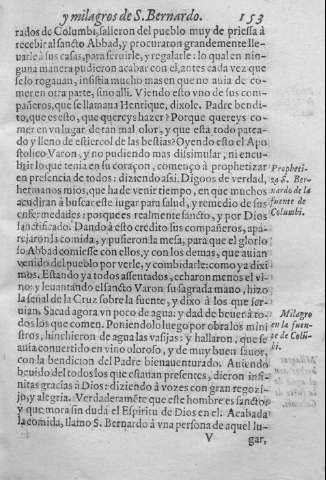 y milagros de S. Bernardo. 153
rados de Columbi, salieron del pueblo muy de priessa à
recebir al sancto Abbad, y procuraron grandemente lle-
uarle à sus casas, para seruirle, y regalarle: lo qual en nin-
guna manera pudieron acabar con el, antes cada vez que
se lo rogauan, insistia mucho mas en que no auia de co-
mer en otra parte, sino alli. Viendo esto vno de sus com-
pañeros, que se llamaua Henrique, dixole. Padre bendi-
to, que es esto, que quereys hazer? Porque quereys co-
mer en vn lugar de tan mal olor, y que està todo patea-
do y lleno de estiercol de las bestias? Oyendo esto el Apo
stolico Varon, y no pudiendo mas dissimular, ni encu-
brir lo que tenia en su coraçon, començo à prophetizar
en presencia de todos: diziendo assi. Digoos de verdad,
hermanos mios, que ha de venir tiempo, en que muchos
acudiran à buscar este lugar para salud, y remedio de sus
enfermedades: porque es realmente sancto, y por Dios
sanctificado. Dando à esto credito sus compañeros, apa-
rejaron la comida, y pusieron la mesa, para que el glorio
so Abbad comiesse con ellos, y con los demas, que auian
venido del pueblo por verle, y combidarle: como ya dezi
mos. Estando ya todos assentados, echaron menos el vi-
no: y leuantando el sancto Varon su sagrada mano, hizo
la señal de la Cruz sobre la fuente, y dixo à los que ser-
uian. Sacad agora vn poco de agua: y dad de beuer à to-
dos los que comen. Poniendolo luego por obra los mini
stros, hincheron de agua las vasijas: y hallaron, que se
auia conuertido en vino oloroso, y de muy buen sabor,
con la bendicion del Padre bienauenturado. Auiendo
beuido del todos los que estauan presentes, dieron infi-
nitas gracias à Dios: diziendo à vozes con gran regozi-
jo, y alegria. Verdaderamẽte que este hombre es sancto:
y que mora sin duda el Espiritu de Dios en el. Acabada
la comida, llamo S. Bernardo à vna persona de aquel lu-
V gar,
Propheti-
za S. Ber-
nardo de la
fuente de
Columbi.
Milagro
en la fuen-
te de Colũ-
bi.